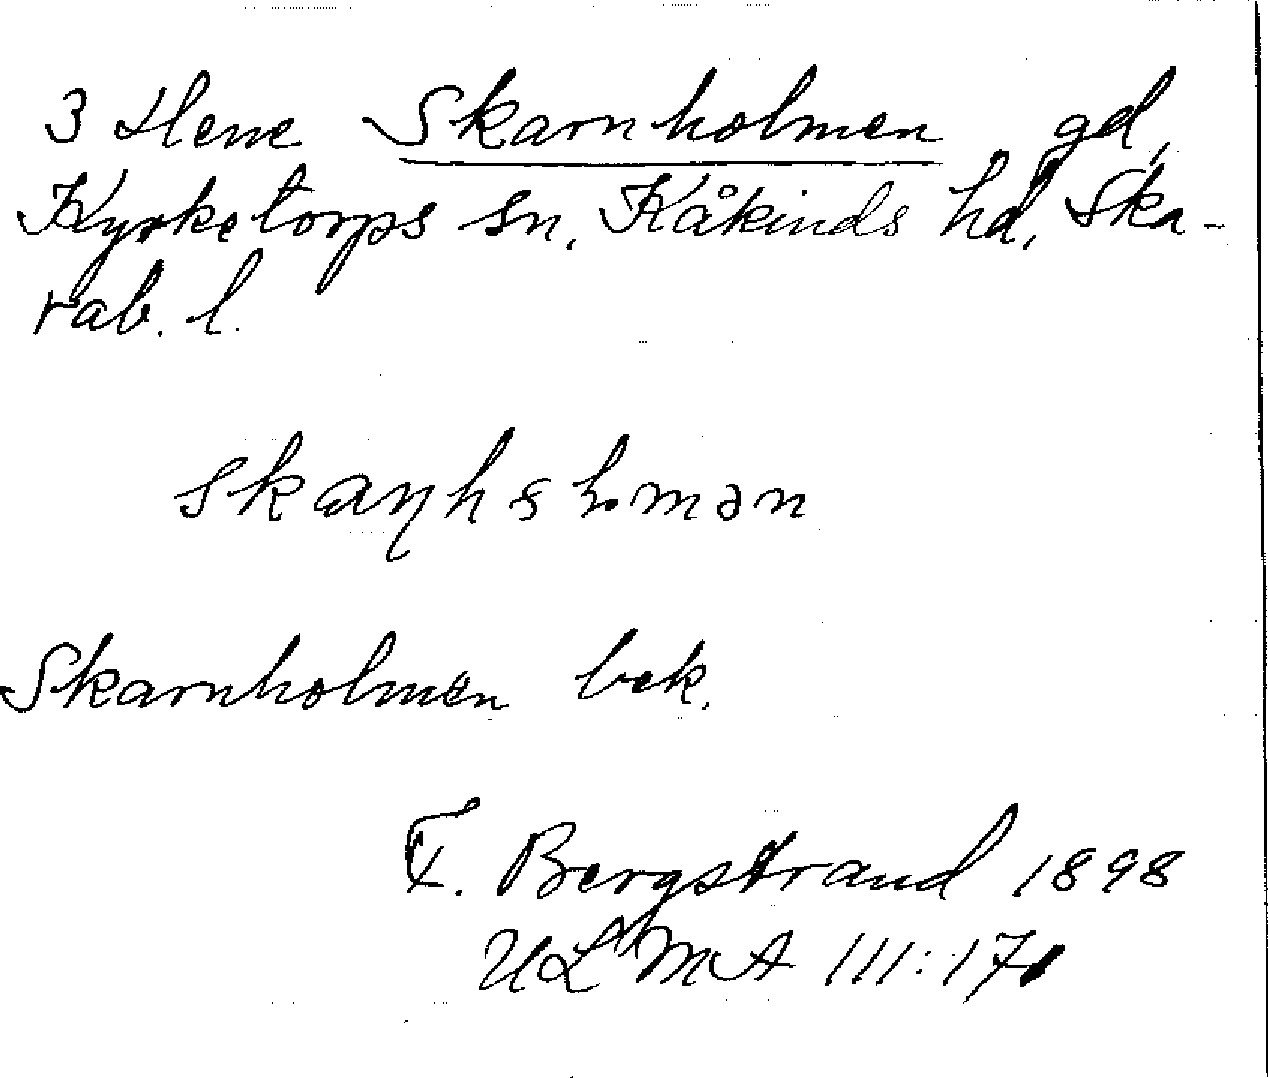 3 Hene Skarnholmen gd,
Kyrketorps sn, Kåkinds hd, Ska-
rab. l.
Skarnholmen bek.
F. Bergstrand 1898
ULMA 111:17